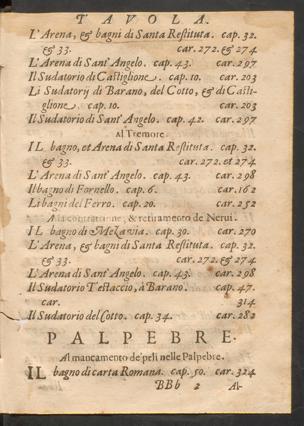 TAVOLA.
L'Arena, & bagni di Santa Restituta. cap. 32.
& 33. car. 272. & 274
L'Arena di Sant'Angelo. cap. 43. car. 297
Il Sudatorio di Castiglione. cap. 10. car. 203
Li Sudatorij di Barano, del Cotto, & di Casti-
glione. cap. 10. car. 203
Il Sudatorio di Sant'Angelo. cap. 42. car. 297
Al Tremore.
IL bagno, et Arena di Santa Restituta. cap. 32.
& 33. car. 272. et 274
L'Arena di Sant'Angelo. cap. 43. car. 298
Il bagno di Fornello. cap. 6. car. 162
Li bagni del Ferro. cap. 20. car. 252
A la contrattione, & retiramento de Nerui.
IL bagno di Mezauia. cap. 30. car. 270
L'Arena, & bagni di Santa Restituta. cap. 32.
& 33. car. 272. & 274
L'Arena di Sant'Angelo. cap. 43. car. 298
Il Sudatorio Testaccio, à Barano. cap. 47.
car. 314
Il Sudatorio del Cotto. cap. 34. car. 282
PALPEBRE.
Al mancamento de' peli nelle Palpebre.
IL bagno di carta Romana. cap. 50. car. 324
BBb 2 Al-